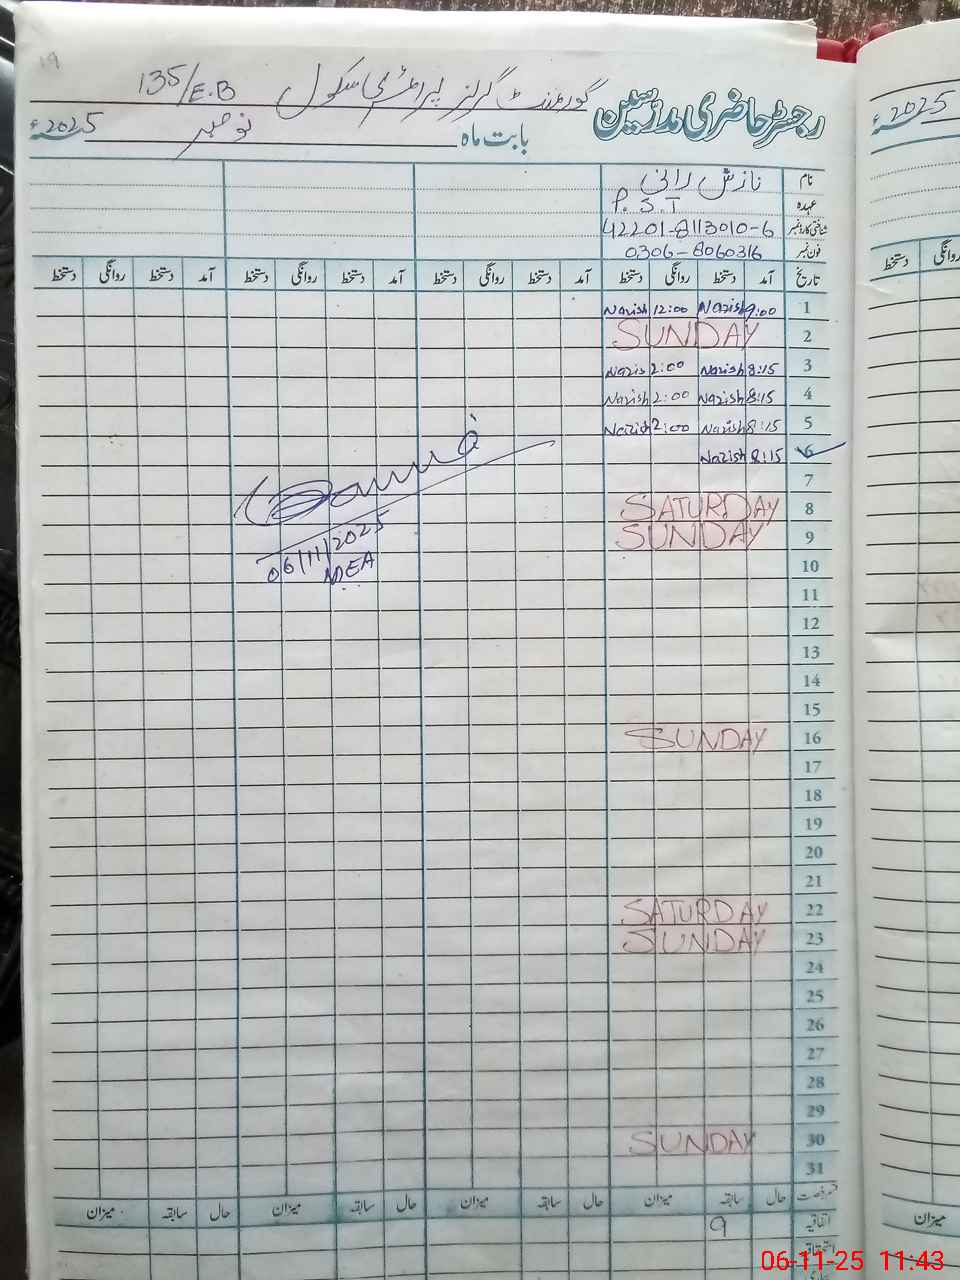 19
گورنمنٹ گرلز پرائمری سکول 135/E.B
رجسٹر حاضری مدرسین
بابت ماہ نومبر 2025ء
نام نازش رانی
عہدہ P.S.T
شناختی کارڈ نمبر 42201-8113010-6
فون نمبر 0306-8060316
تاریخ آمد دستخط روانگی دستخط آمد دستخط روانگی دستخط آمد دستخط روانگی دستخط آمد دستخط روانگی دستخط
1 9:00 Nazish 12:00 Nazish
2 SUNDAY
3 8:15 Nazish 2:00 Nazis
4 8:15 Nazish 2:00 Nazish
5 8:15 Nazish 2:00 Nazish
6 8:15 Nazish
7
8 SATURDAY
9 SUNDAY
06/11/2025
MEA
10
11
12
13
14
15
16 SUNDAY
17
18
19
20
21
22 SATURDAY
23 SUNDAY
24
25
26
27
28
29
30 SUNDAY
31
رخصت حال سابقہ میزان حال سابقہ میزان حال سابقہ میزان حال سابقہ میزان
اتفاقیہ 9
استحقاقیہ
2025ء
روانگی دستخط
میزان
06-11-25 11:43